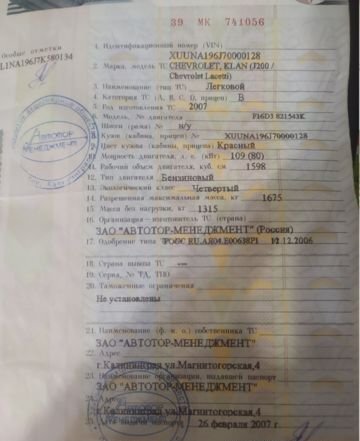 39 МК 741056
Особые отметки
L1NA196J7K580134
1. Идентификационный номер (VIN)
XUUNA196J70000128
2. Марка, модель ТС CHEVROLET, KLAN (J200 /
Chevrolet Lacetti)
3. Наименование (тип ТС) Легковой
4. Категория ТС (A, B, C, D, прицеп) B
5. Год изготовления ТС 2007
6. Модель, № двигателя F16D3 821543K
Шасси (рама) № н/у
8. Кузов (кабина, прицеп) № XUUNA196J70000128
9. Цвет кузова (кабины, прицепа) Красный
10. Мощность двигателя, л. с. (кВт) 109 (80)
11. Рабочий объем двигателя, куб. см 1598
12. Тип двигателя Бензиновый
13. Экологический класс Четвертый
14. Разрешенная максимальная масса, кг 1675
15. Масса без нагрузки, кг 1315
16. Организация-изготовитель ТС (страна)
ЗАО "АВТОТОР-МЕНЕДЖМЕНТ" (Россия)
17. Одобрение типа РОСС RU.АЯ04.Е00638Р1 12.12.2006
18. Страна вывоза ТС ---
19. Серия, № ТД, ТПО
20. Таможенные ограничения
Не установлены
21. Наименование (ф. и. о.) собственника ТС
ЗАО "АВТОТОР-МЕНЕДЖМЕНТ"
22. Адрес
г.Калининград ул.Магнитогорская,4
23. Наименование организации, выдавшей паспорт
ЗАО "АВТОТОР-МЕНЕДЖМЕНТ"
24. Адрес
г.Калининград ул.Магнитогорская,4
25. Дата выдачи паспорта 26 февраля 2007 г.
Автотор
МЕНЕДЖМЕНТ